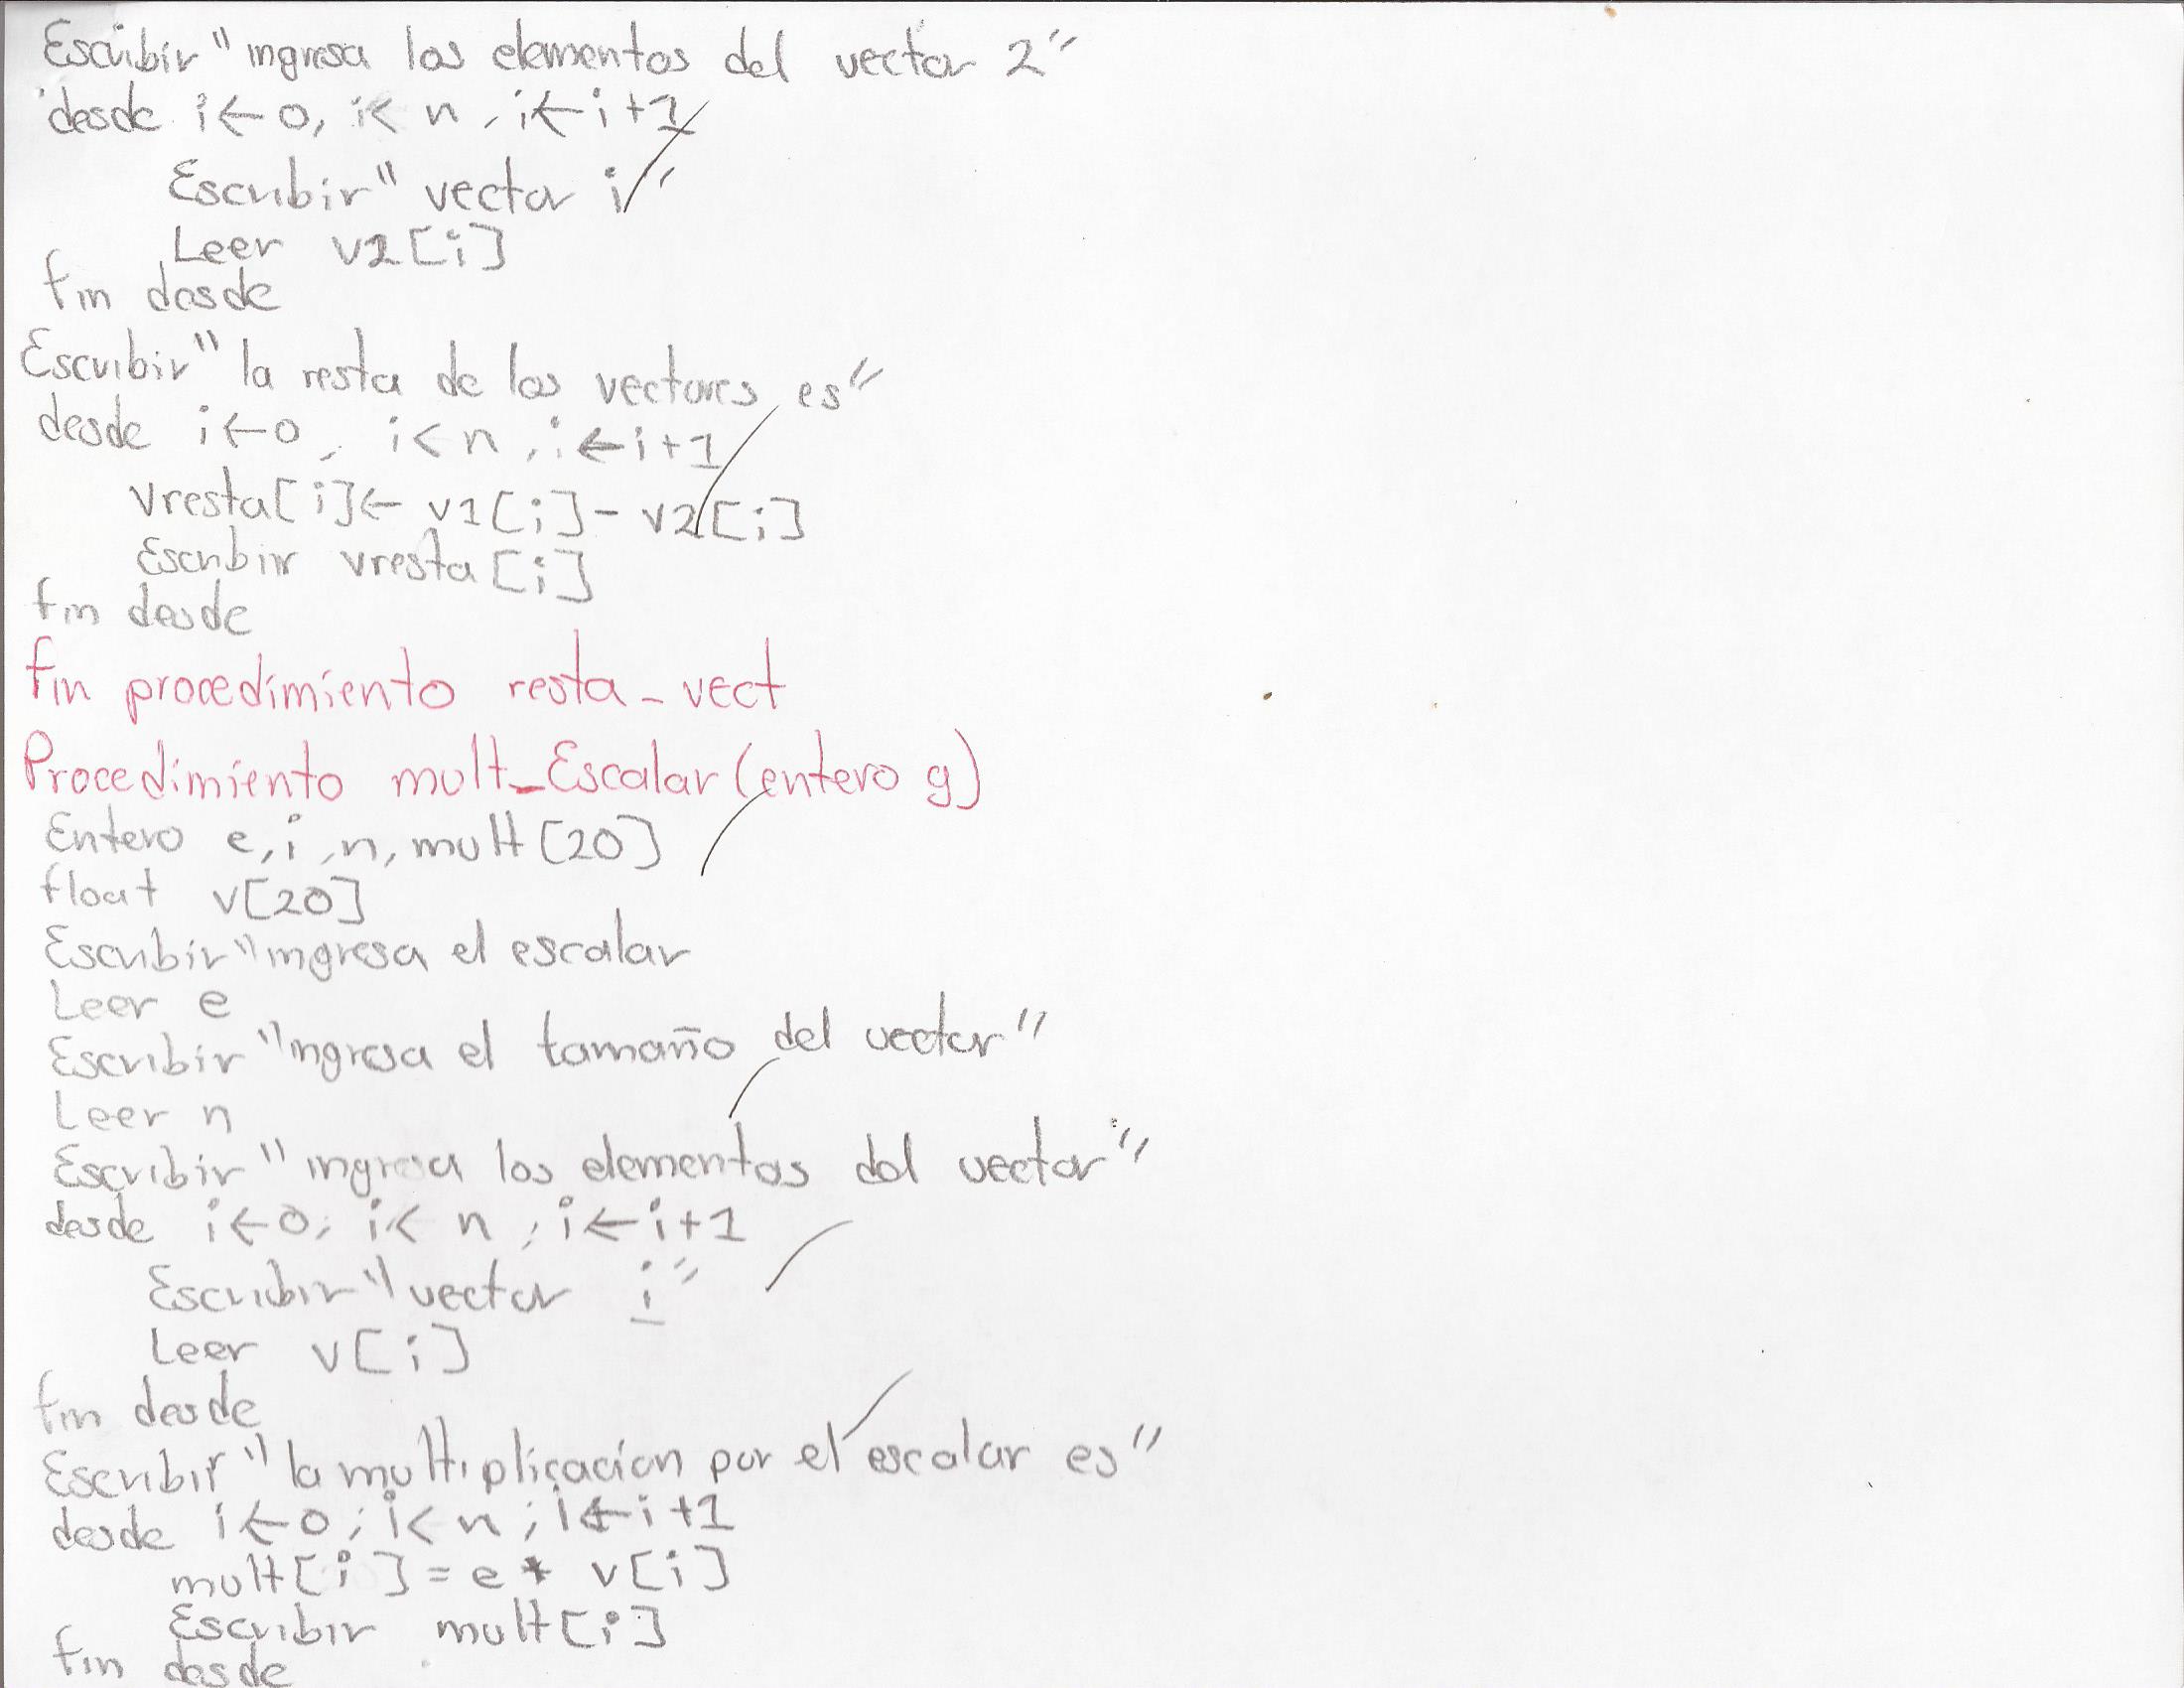 Escribir "ingresa los elementos del vector 2"
desde i←0, i< n, i←i+1
Escribir "vector i"
Leer v2[i]
fin desde
Escribir "la resta de los vectores es"
desde i←0, i<n, i←i+1
Vresta[i]← v1[i]- v2[i]
Escribir vresta[i]
fin desde
fin procedimiento resta_vect
Procedimiento mult_Escalar(entero g)
Entero e, i, n, mult[20]
float v[20]
Escribir "ingresa el escalar
Leer e
Escribir "ingresa el tamaño del vector"
Leer n
Escribir "ingresa los elementos del vector"
desde i←0; i< n; i←i+1
Escribir "vector i"
Leer v[i]
fin desde
Escribir "la multiplicación por el escalar es"
desde i←0; i<n; i←i+1
mult[i]=e* v[i]
Escribir mult[i]
fin desde